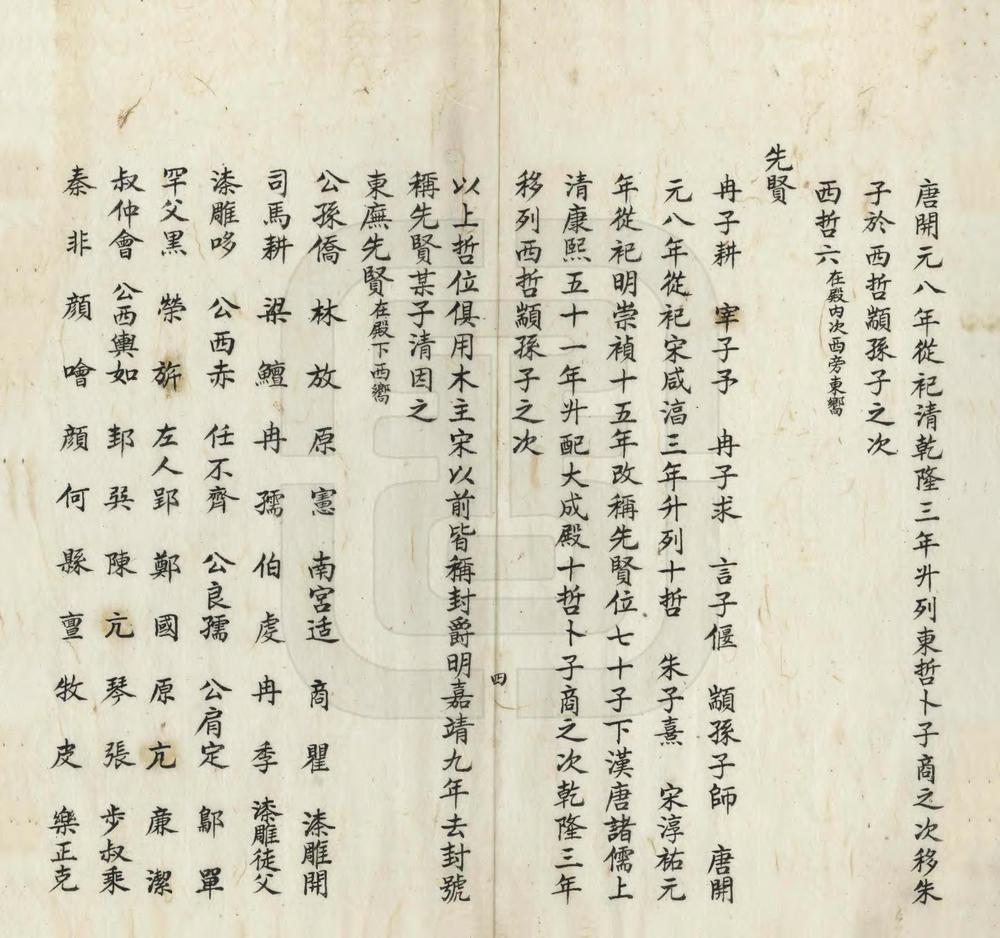 唐開元八年從祀清乾隆三年升列東哲卜子商之次移朱
子於西哲顓孫子之次
西哲六在殿內次西旁東嚮
先賢
冉子耕 宰子予 冉子求 言子偃 顓孫子師 唐開
元八年從祀宋咸湻三年升列十哲 朱子熹 宋淳祐元
年從祀明崇禎十五年改稱先賢位七十子下漢唐諸儒上
清康熙五十一年升配大成殿十哲卜子商之次乾隆三年
移列西哲顓孫子之次
四
以上哲位俱用木主宋以前皆稱封爵明嘉靖九年去封號
稱先賢某子清因之
東廡先賢在殿下西嚮
公孫僑 林放 原憲 南宮适 商瞿 漆雕開
司馬耕 梁鱣 冉孺 伯虔 冉季 漆雕徒父
漆雕哆 公西赤 任不齊 公良孺 公肩定 鄡單
罕父黑 榮旂 左人郢 鄭國 原亢 廉潔
叔仲會 公西輿如 邽巽 陳亢 琴張 步叔乘
秦非 顏噲 顏何 縣亶 牧皮 樂正克